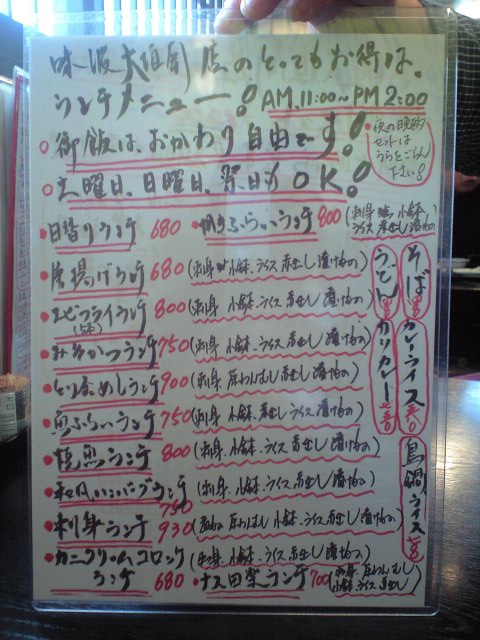 店のとってもお得な、
ランチメニュー!! AM.11:00~PM2:00
○御飯は、おかわり自由です!
○土曜日、日曜日、祭日もOK!
夜の晩酌セットはうらをごらん下さい!
日替りランチ 680
ランチ 800 (刺身 小鉢 ライス 赤出し 漬物)
唐揚げランチ 680 (刺身 小鉢、ライス 赤出し 漬物)
エビフライランチ 800 (刺身 小鉢、ライス 赤出し 漬物)
みそかつランチ 750 (刺身 小鉢、ライス 赤出し 漬物)
とり釜めしランチ 900 (刺身 茶わんむし 赤出し 漬物)
魚ふらいランチ 750 (刺身 小鉢、赤出し ライス 漬物)
焼魚ランチ 800 (刺身 小鉢、ライス 赤出し 漬物)
和風ハンバーグランチ 750 (刺身、小鉢、ライス 赤出し 漬物)
刺身ランチ 930 (茶わんむし 小鉢、ライス 赤出し 漬物)
カニクリームコロッケランチ 680 (刺身 小鉢、ライス 赤出し 漬物)
ナス田楽ランチ 700 (刺身 茶わんむし 小鉢、ライス 赤出し)
そば
うどん
カレーライス
カツカレー
鳥鍋ライス